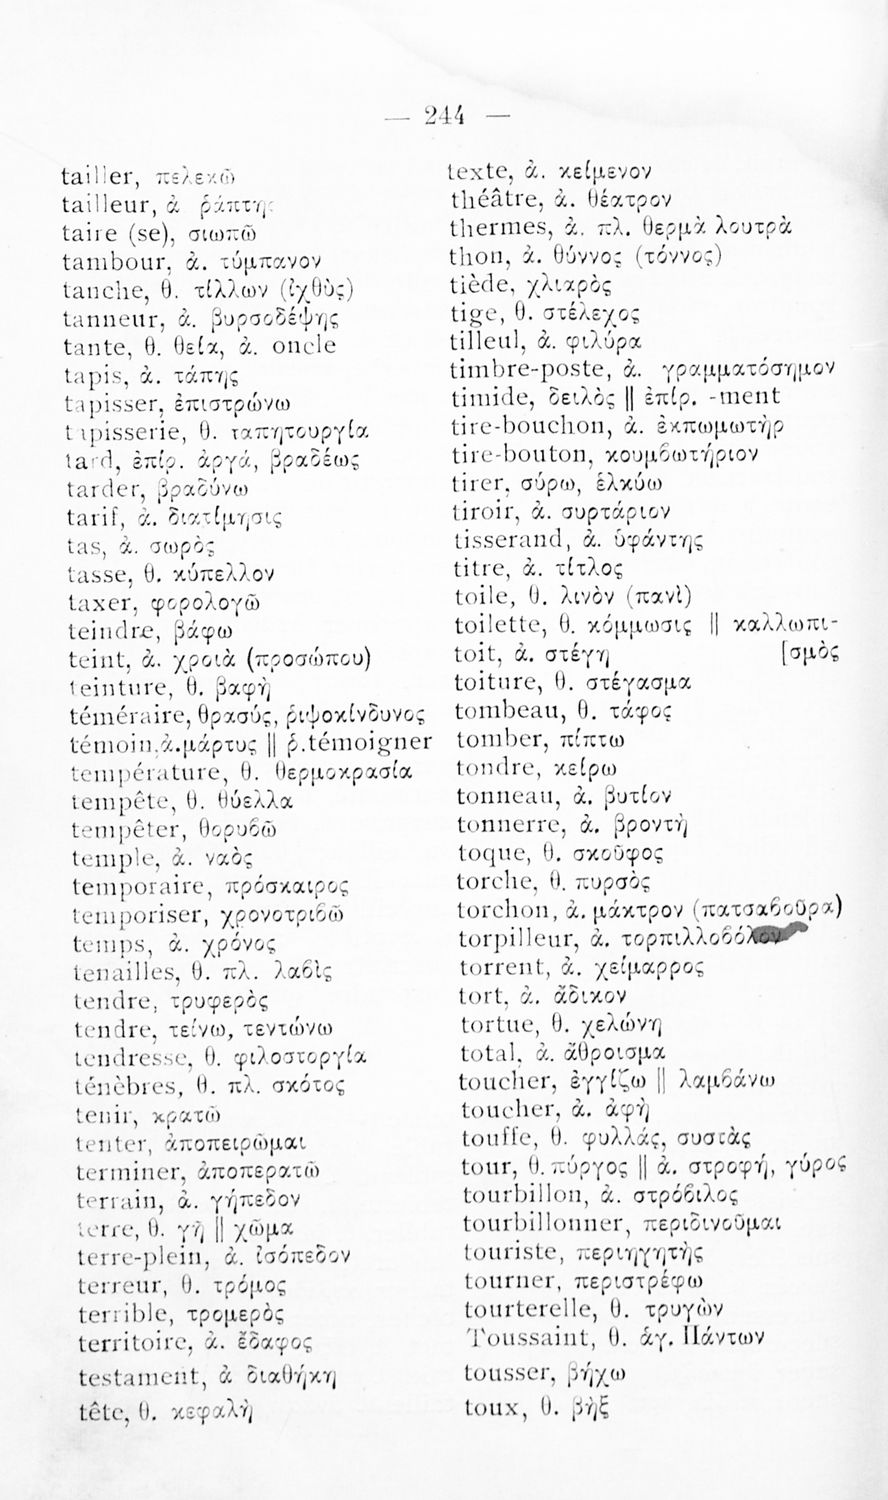 — 244 —
tailler, πελεκῶ
tailleur, ἀ ῥάπτης
taire (se), σιωπῶ
tambour, ἀ. τύμπανον
tanche, θ. τίλλων (ἰχθὺς)
tanneur, ἀ. βυρσοδέψης
tante, θ. θεία, ἀ. oncle
tapis, ἀ. τάπης
tapisser, ἐπιστρώνω
tapisserie, θ. ταπητουργία
tard, ἐπίρ. ἀργά, βραδέως
tarder, βραδύνω
tarif, ἀ. διατίμησις
tas, ἀ. σωρὸς
tasse, θ. κύπελλον
taxer, φορολογῶ
teindre, βάφω
teint, ἀ. χροιὰ (προσώπου)
teinture, θ. βαφὴ
téméraire, θρασύς, ῥιψοκίνδυνος
témoin,ἀ.μάρτυς || ῥ.témoigner
température, θ. θερμοκρασία
tempête, θ. θύελλα
tempêter, θορυβῶ
temple, ἀ. ναὸς
temporaire, πρόσκαιρος
temporiser, χρονοτριβῶ
temps, ἀ. χρόνος
tenailles, θ. πλ. λαβὶς
tendre, τρυφερὸς
tendre, τείνω, τεντώνω
tendresse, θ. φιλοστοργία
ténèbres, θ. πλ. σκότος
tenir, κρατῶ
tenter, ἀποπειρῶμαι
terminer, ἀποπερατῶ
terrain, ἀ. γήπεδον
terre, θ. γῆ || χῶμα
terre-plein, ἀ. ἰσόπεδον
terreur, θ. τρόμος
terrible, τρομερὸς
territoire, ἀ. ἔδαφος
testament, ἀ διαθήκη
tête, θ. κεφαλὴ
texte, ἀ. κείμενον
théâtre, ἀ. θέατρον
thermes, ἀ. πλ. θερμὰ λουτρὰ
thon, ἀ. θύννος (τόννος)
tiède, χλιαρὸς
tige, θ. στέλεχος
tilleul, ἀ. φιλύρα
timbre-poste, ἀ. γραμματόσημον
timide, δειλὸς || ἐπίρ. -ment
tire-bouchon, ἀ. ἐκπωμωτὴρ
tire-bouton, κουμβωτήριον
tirer, σύρω, ἑλκύω
tiroir, ἀ. συρτάριον
tisserand, ἀ. ὑφάντης
titre, ἀ. τίτλος
toile, θ. λινὸν (πανὶ)
toilette, θ. κόμμωσις || καλλωπι-
toit, ἀ. στέγη [σμὸς
toiture, θ. στέγασμα
tombeau, θ. τάφος
tomber, πίπτω
tondre, κείρω
tonneau, ἀ. βυτίον
tonnerre, ἀ. βροντὴ
toque, θ. σκοῦφος
torche, θ. πυρσὸς
torchon, ἀ. μάκτρον (πατσαβοῦρα)
torpilleur, ἀ. τορπιλλοβόλον
torrent, ἀ. χείμαρρος
tort, ἀ. ἄδικον
tortue, θ. χελώνη
total, ἀ. ἄθροισμα
toucher, ἐγγίζω || λαμβάνω
toucher, ἀ. ἁφὴ
touffe, θ. φυλλάς, συστὰς
tour, θ. πύργος || ἀ. στροφή, γύρος
tourbillon, ἀ. στρόβιλος
tourbillonner, περιδινοῦμαι
touriste, περιηγητὴς
tourner, περιστρέφω
tourterelle, θ. τρυγὼν
Toussaint, θ. ἁγ. Πάντων
tousser, βήχω
toux, θ. βὴξ